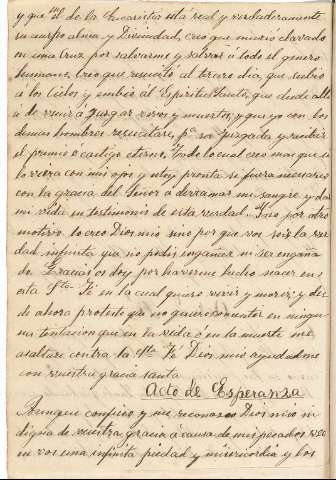 y que en el de la Eucaristia está real y verdaderamente
su cuerpo alma y Divinidad, creo que murió clavado
en una Cruz por salvarme y salvar á todo el genero
humano. Creo que resucitó al tercero dia, que subió
á los Cielos y embió al Espiritu Santo, que desde alli
á de venir á juzgar vivos y muertos, y que yo con los
demas hombres resucitare, pa ser juzgada y recibir
el premio ó castigo eterno. Todo lo cual creo mas que si
lo viera con mis ojos y estoy pronta si fuera necesario
con la gracia del Señor a derramar mi sangre y dar
mi vida en testimonio de esta verdad. Y no por otro
motivo lo creo Dios mio sino por que vos sois la ver
dad infinita que no podeis engañar ni ser engaña
do. Gracias os doy por haverme hecho nacer en
esta Sta. Fé en la cual quiero vivir y morir; y des
de ahora protesto que no quiero consentir en ningu
na tentacion que en la vida ó en la muerte me
asalture contra la Sta. Fé Dios mio ayudadme
con vuestra gracia santa
Acto de Esperanza
Aunque confieso y me reconozco Dios mio in
digna de vuestra gracia á causa de mis pecados veo
en vos una infinita piedad y misericordia y los